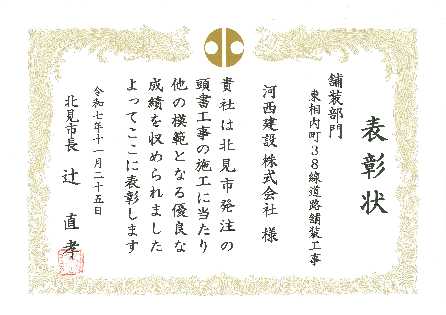 表彰状
舗装部門
東相内町38線道路舗装工事
河西建設株式会社 様
貴社は北見市発注の
頭書工事の施工に当たり
他の模範となる優良な
成績を収められました
よってここに表彰します
令和七年十一月二十五日
北見市長 辻 直孝